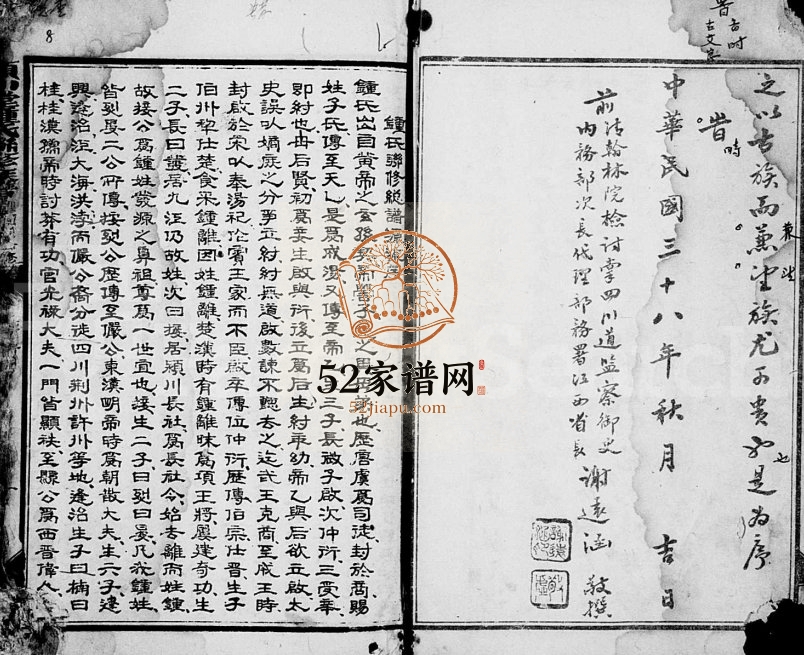 之以古族而兼望族尤可貴也是為序
昔時
中華民國三十八年秋月 吉日
前清翰林院檢討掌四川道監察御史
內務部次長代理部務署江西省長 謝遠涵 敬撰
昔古時
古文
8
鍾氏聯修總譜源流
鍾氏出自黃帝之玄孫契帝嚳子 之 也歷唐虞為司徒封於商賜
姓子氏傳至天乙是為成湯又傳至帝 三子長啟子啟次仲衍三受辛
即紂也毋后賢初為妾生啟與衍後立為后生紂帝乙與后欲立啟太
史謨以嫡庶之分爭立紂紂無道啟數諫不聽去之迄武王克商至成王時
封啟於宋以奉湯祀作賓王家而不臣啟卒傳位仲衍歷傳伯宗仕晉生子
伯州犁仕楚食采鍾離因姓鍾離楚漢時有鍾離昧為項王將屢建奇功生
二子長曰發居九江仍故姓次曰接居潁川長社為長社令始去離而姓鍾
故接公為鍾姓發源之鼻祖尊為一世宜也接生二子曰烈曰 凡我鍾姓
皆烈 二公所傳接烈公歷傳至儼公東漢明帝時為朝散大夫生六子逢
興 洛洰大海洪浮而儼公裔分徙四川荆州許州等地逢治生子曰楠曰
桂桂漢孺帝時討莽有功官光祿大夫一門皆顯秩至縣公為西晉偉人
52家谱网
52jiapu.com